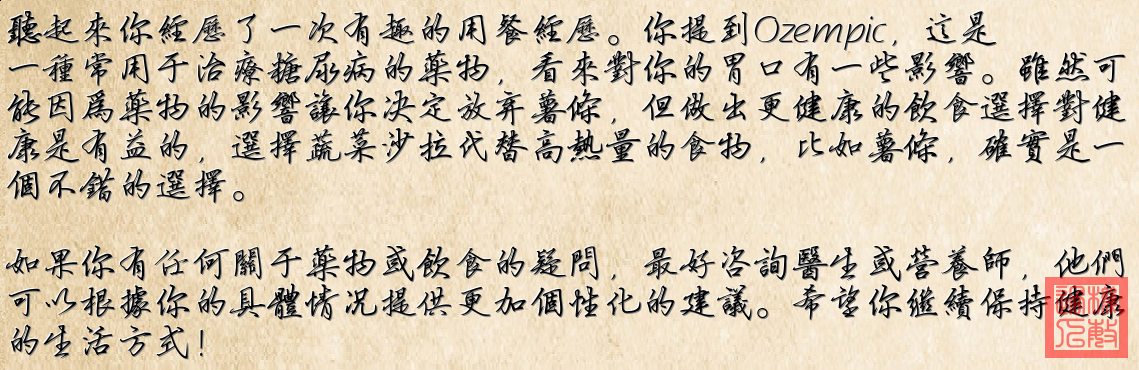 聽起來你經歷了一次有趣的用餐經歷。你提到Ozempic，這是
一種常用于治療糖尿病的藥物，看來對你的胃口有一些影響。雖然可
能因爲藥物的影響讓你決定放弃薯條，但做出更健康的飲食選擇對健
康是有益的，選擇蔬菜沙拉代替高熱量的食物，比如薯條，確實是一
個不錯的選擇。
如果你有任何關于藥物或飲食的疑問，最好咨詢醫生或營養師，他們
可以根據你的具體情况提供更加個性化的建議。希望你繼續保持健康
的生活方式！